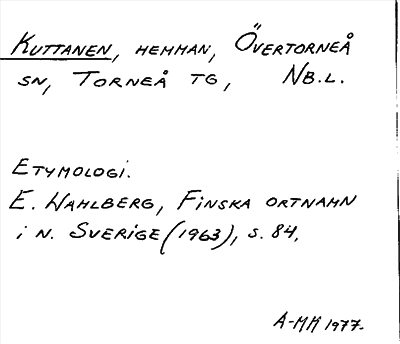 Kuttanen, hemman, Övertorneå
sn, Torneå tg, Nb.l.
Etymologi.
E. Wahlberg, Finska ortnahn
i n. Sverige (1963), s. 84,
A-MH 1977.